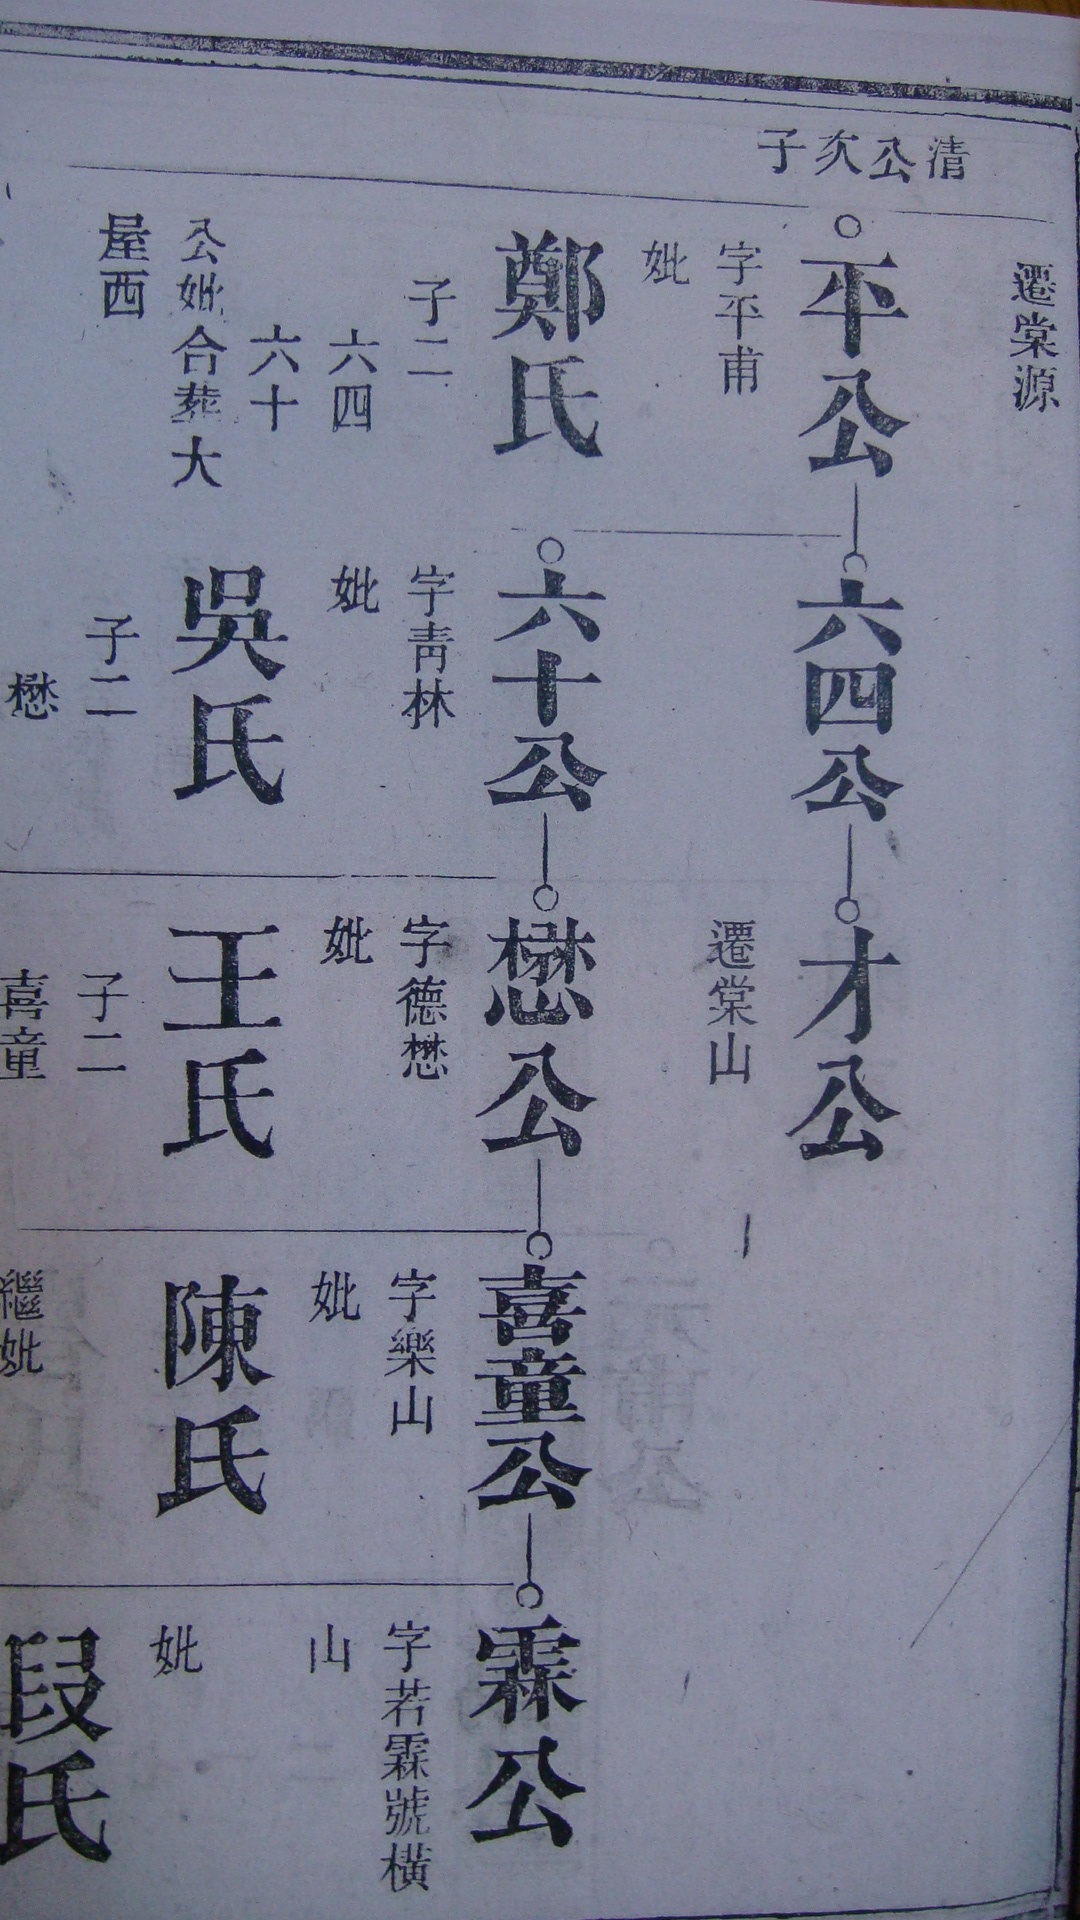 遷棠源
清公次子
平公
字平甫
妣
鄭氏
子二
六四
六十
公妣合葬大
屋西
六四公
六十公
字靑林
妣
吳氏
子二
懋
才公
遷棠山
懋公
字德懋
妣
王氏
子二
喜童
喜童公
字樂山
妣
陳氏
繼妣
霖公
字若霖號橫
山
妣
段氏